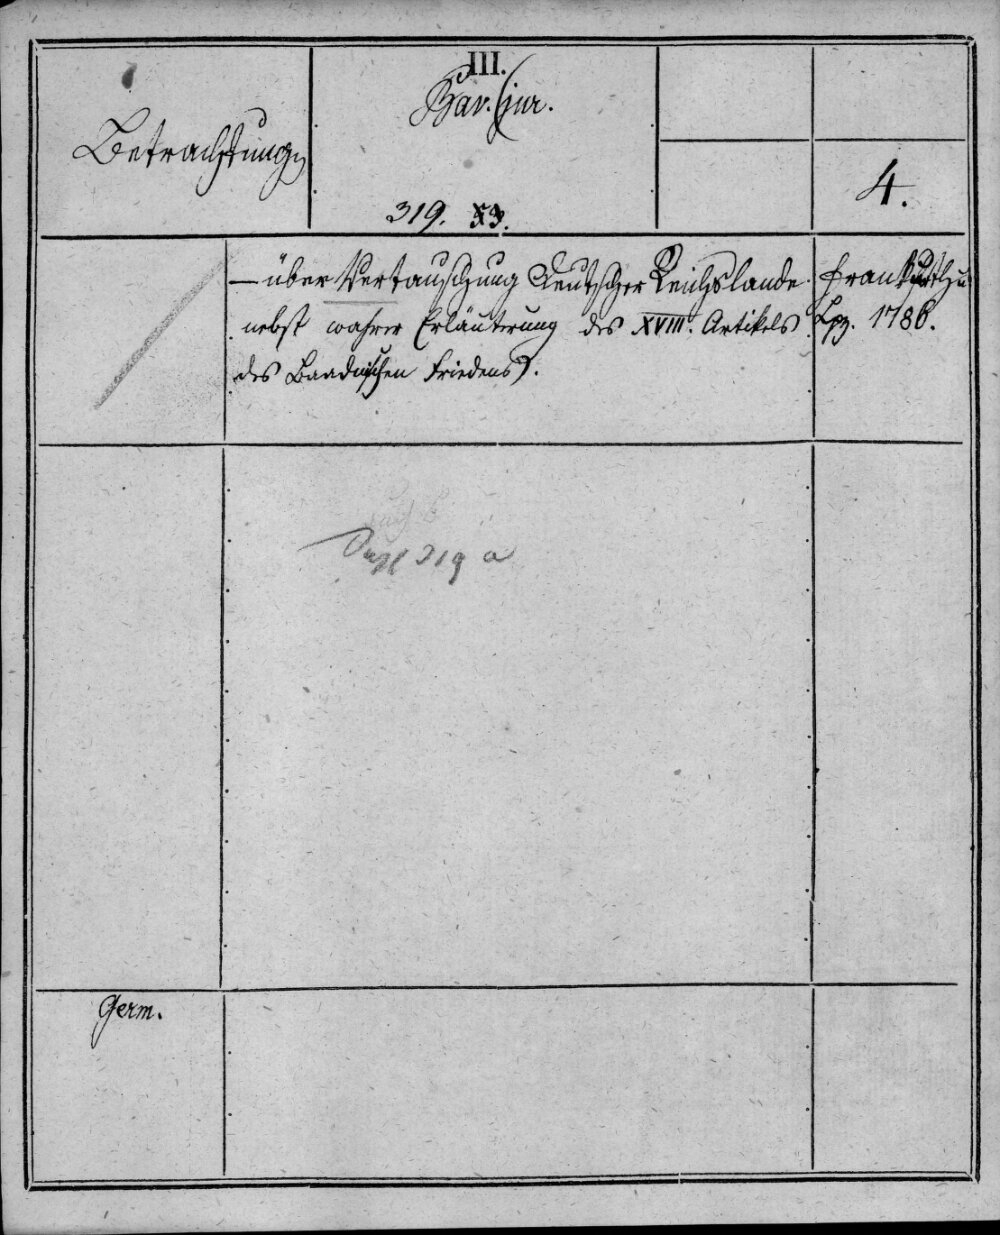 III.
Betrachtung
Bav. (jur.
319.
4.
— über Vertauschung deutscher Reichslande
nebst wahrer Erläuterung des XVIII. Artikels
des Baadnischen Friedens).
Frankfurth u
Lpz. 1786.
319 a
Germ.